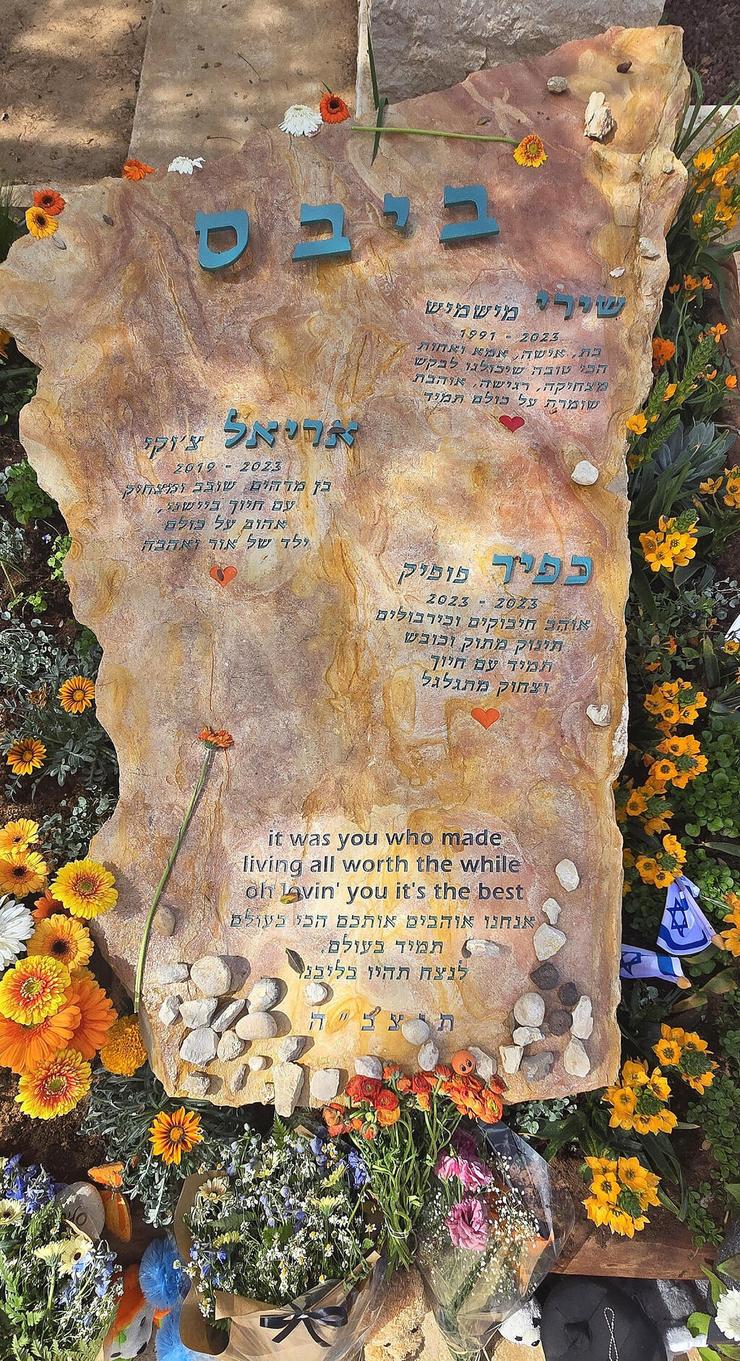 ביבס
שירי מישמיש
1991 - 2023
בת, אישה, אמא ואחות
הכי טובה שיכולנו לבקש
מצחיקה, רגישה, אוהבת
שומרת על כולם תמיד
אריאל צ'וקי
2019 - 2023
בן מדהים, שובב ומצחיק
עם חיוך ביישני,
אהוב על כולם
ילד של אור ואהבה
כפיר פופיק
2023 - 2023
אוהב חיבוקים וכירבולים
תינוק מתוק וכובש
תמיד עם חיוך
וצחוק מתגלגל
it was you who made
living all worth the while
oh lovin' you it's the best
אנחנו אוהבים אתכם הכי בעולם
תמיד בעולם.
לנצח תהיו בליבנו
תנצב״ה